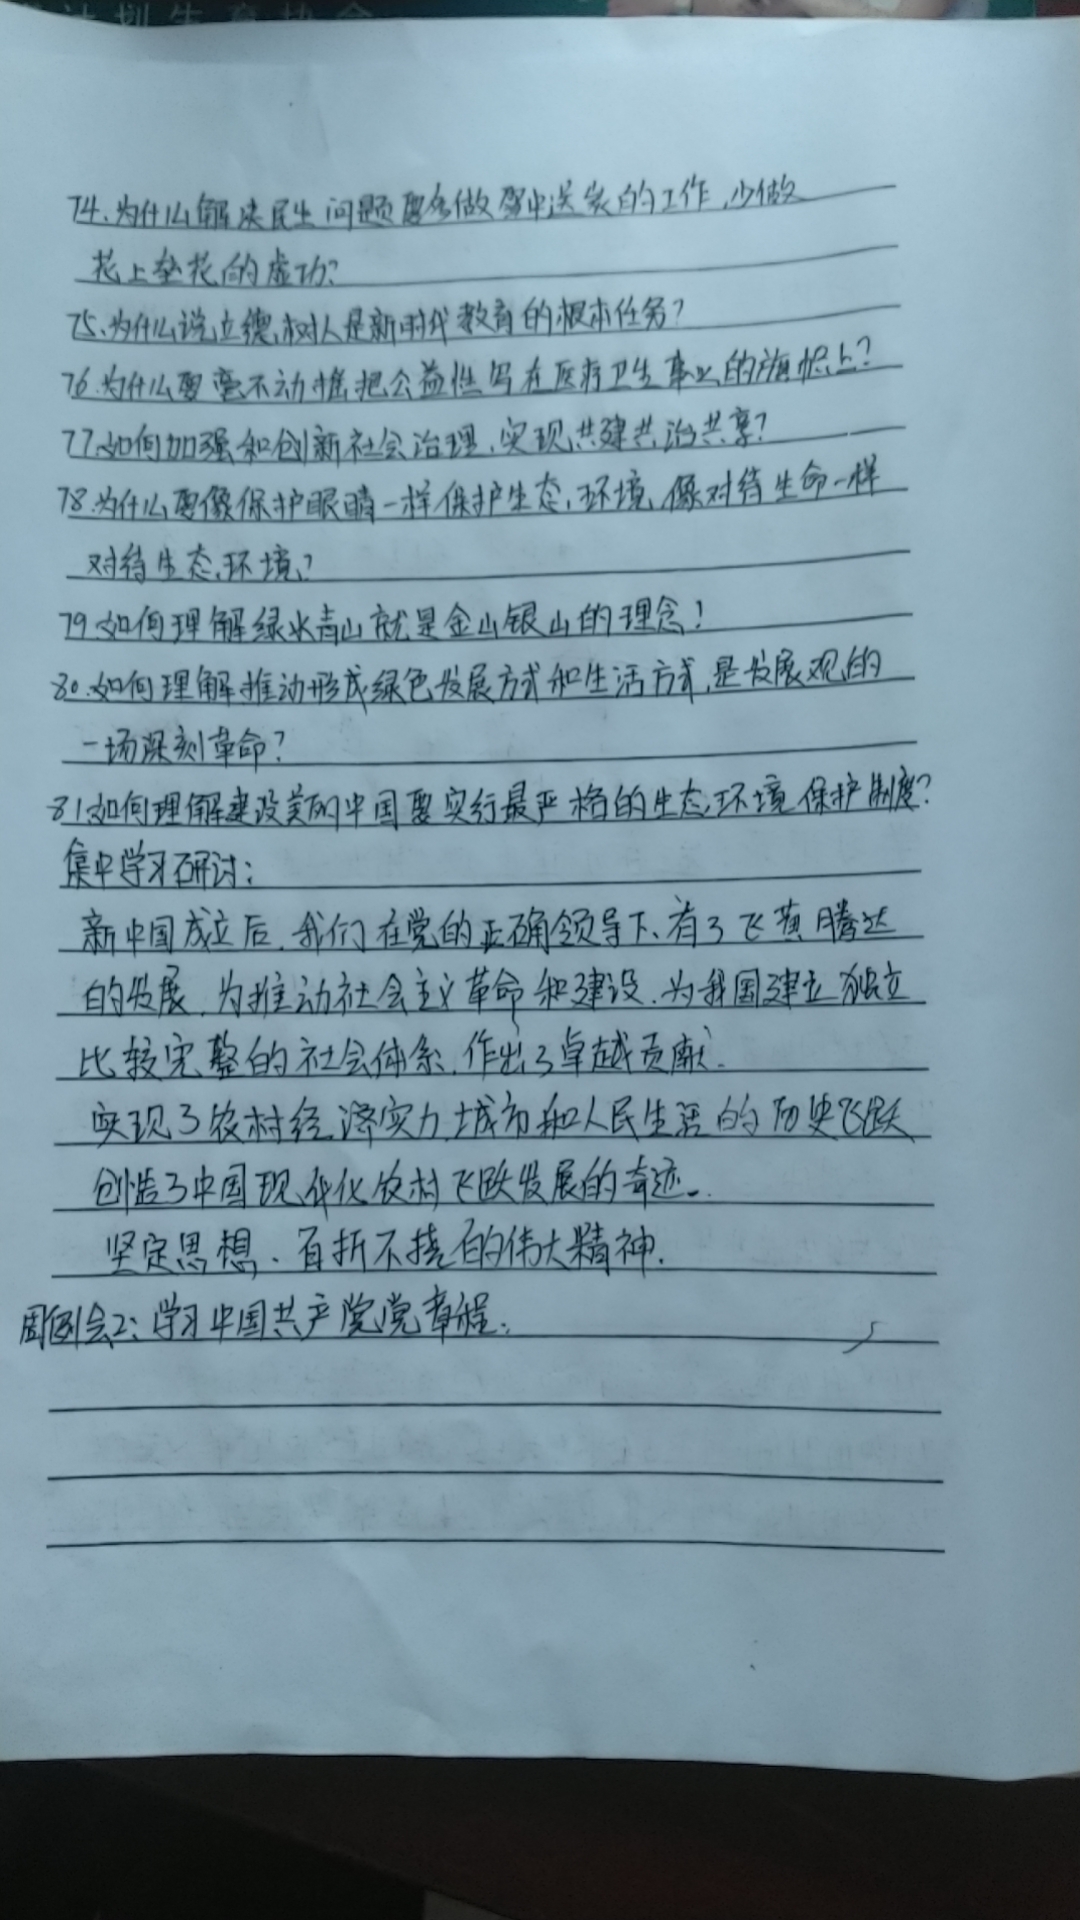 计划生育协会
74.为什么解决民生问题要多做雪中送炭的工作,少做
花上垒花的虚功?
75.为什么说立德树人是新时代教育的根本任务?
76.为什么要毫不动摇把公益性写在医疗卫生事业的旗帜上?
77.如何加强和创新社会治理,实现共建共治共享?
78.为什么要像保护眼睛一样保护生态环境,像对待生命一样
对待生态环境?
79.如何理解绿水青山就是金山银山的理念!
80.如何理解推动形成绿色发展方式和生活方式,是发展观的
一场深刻革命?
81.如何理解建设美丽中国要实行最严格的生态环境保护制度?
集中学习研讨:
新中国成立后,我们在党的正确领导下,有了飞黄腾达
的发展,为推动社会主义革命和建设,为我国建立独立
比较完整的社会体系,作出了卓越贡献.
实现了农村经济实力,城市和人民生活的历史飞跃
创造了中国现代化农村飞跃发展的奇迹。
坚定思想、百折不挠的伟大精神.
周例会2:学习中国共产党党章程.